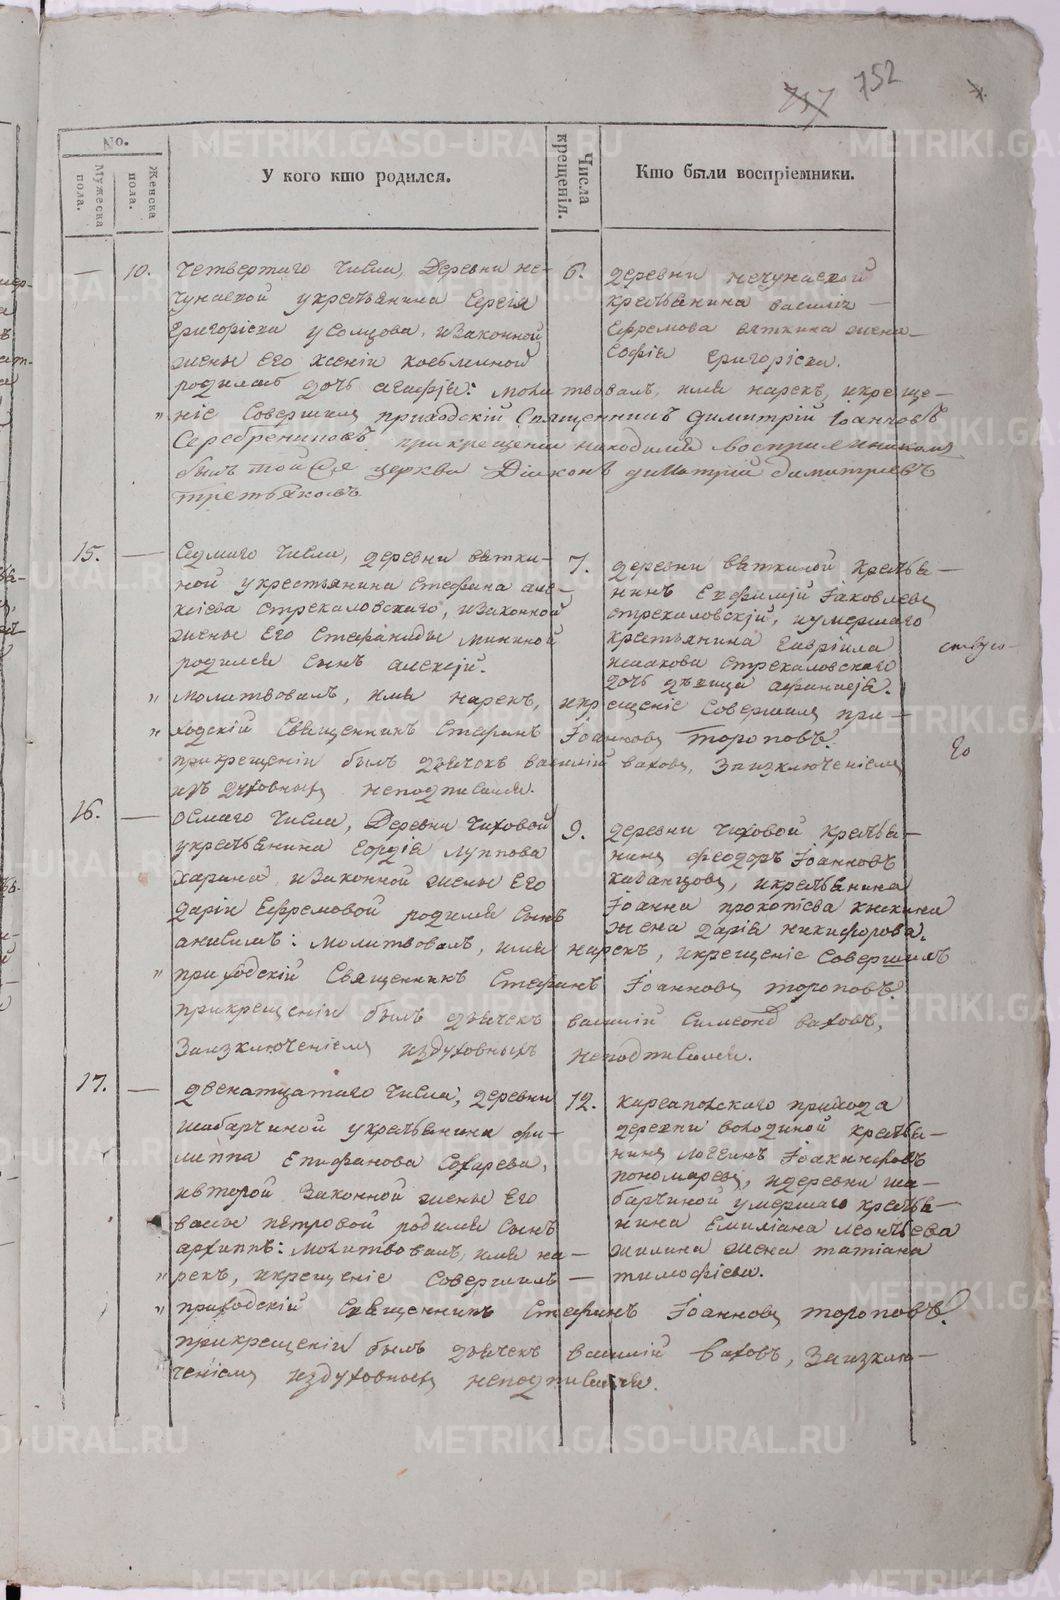 752
717
No.
Мужеска пола.
Женска пола.
У кого кто родился.
Числа крещенія.
Кто были воспріемники.
— 10. четвертаго числа, деревни не-
чунаевой укрестьянина Сергія
Григоріева усолцова, изаконной
жены его ксеніи козьминой
родилась дочь агафія: молитвовалъ, имя нарекъ, икреще-
ніе совершилъ приходскій Священникъ димитрій Іоанновъ
Серебрениковъ прикрещеніи находился воспріемникомъ
былъ тойже церкви Діаконъ димитрій димитріевъ
третьяковъ
6. деревни нечунаевой
крестьянина василія —
ефремова вяткина жена
софія григоріева.
15. — Седмаго числа, деревни вятки-
ной укрестьянина стефана але-
ксіева стрекаловскаго, изаконной
жены его стефаниды мининой
родился сынъ алексій.
молитвовалъ, имя нарекъ, икрещеніе совершилъ при-
ходскій священникъ стефанъ Іоанновъ тороповъ.
прикрещеніи былъ дьячокъ василійваховъ, заизключеніемъ
изъ духовныхъ неподписался.
7. деревни вяткиной крестья-
нинъ евфимій Іаковлевъ
стрекаловскій, иумершаго
крестьянина гавріила
исакова стрекаловскаго
дочь дѣвица афанасія.
ству­ю-
го
16. — осмаго числа, деревни чиховой
укрестьянина гордія луппова
харина изаконной жены его
даріи ефремовой родился сынъ
анисимъ: молитвовалъ, имя нарекъ, икрещеніе совершилъ
приходскій священникъ стефанъ Іоанновъ тороповъ.
прикрещеніи былъ дьячекъ василій симеоновъ ваховъ,
заизключеніемъ издуховныхъ неподписался.
9. деревни чиховой крестья-
нинъ феодоръ Іоанновъ
кабанцовъ, икрестьянина
Іоанна прокопіева
жена дарія никифорова.
17. — двенатцатаго числа, деревни
шабарчиной укрестьянина фи-
липпа епифанова сохарева,
ивторой законной жены его
васы петровой родился сынъ
архиппъ: молитвовалъ, имя на-
рекъ, икрещеніе совершилъ —
приходскій священникъ стефанъ Іоанновъ тороповъ.
прикрещеніи былъ дьячекъ василій ваховъ, заизклю-
ченіемъ издуховныхъ неподписался.
12. прихода
деревни володиной крестья-
нинъ логгинъ Іоакинфовъ
пономаревъ, идеревни ша-
барчиной умершаго крестья-
нина емиліана леонтьева
жилина жена татіана
тимофіева.
METRIKI.GASO-URAL.RU